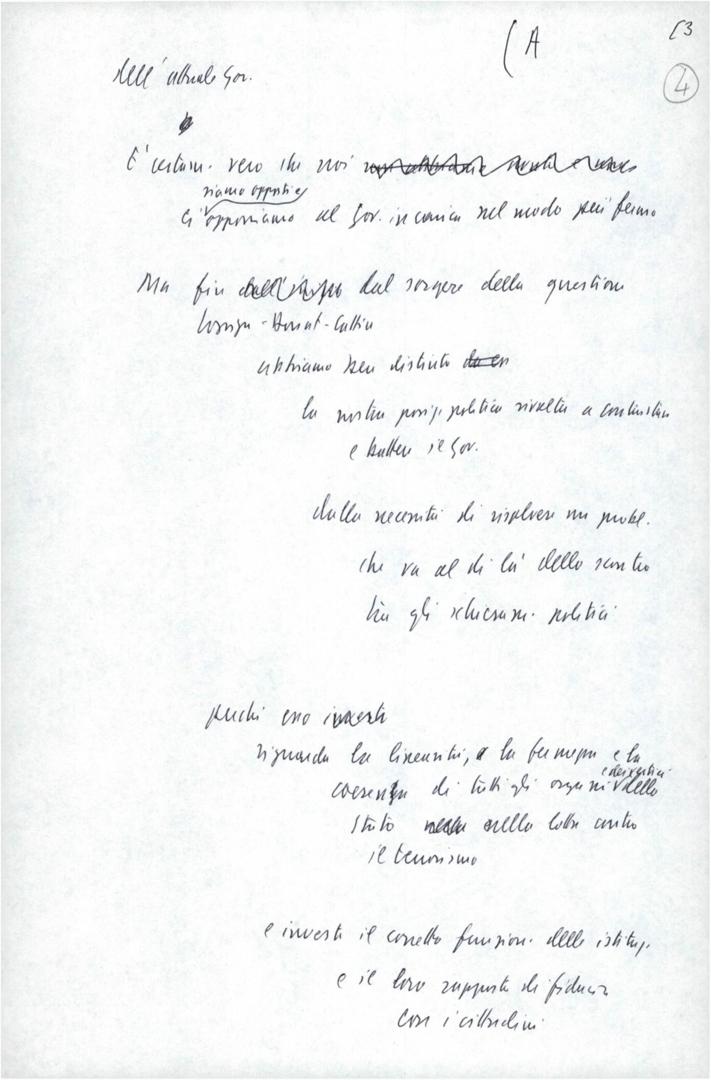 (A
[3
4
dell'attuale Gov.
E' certam. vero che noi
siamo opposti e
ci opponiamo al Gov. in carica nel modo più fermo
Ma fin dal sorgere della questione
Cossiga-Donat-Cattin
abbiamo ben distinto
la nostra posiz. politica rivolta a contrastare
e battere il Gov.
dalla necessità di risolvere un probl.
che va al di là dello scontro
tra gli schieram. politici
perché esso investe
riguarda la linearità, la fermezza e la
coerenza di tutti gli organi dello
Stato nella lotta contro
il terrorismo
e investe il corretto funzion. delle istituz.
e il loro rapporto di fiducia
con i cittadini